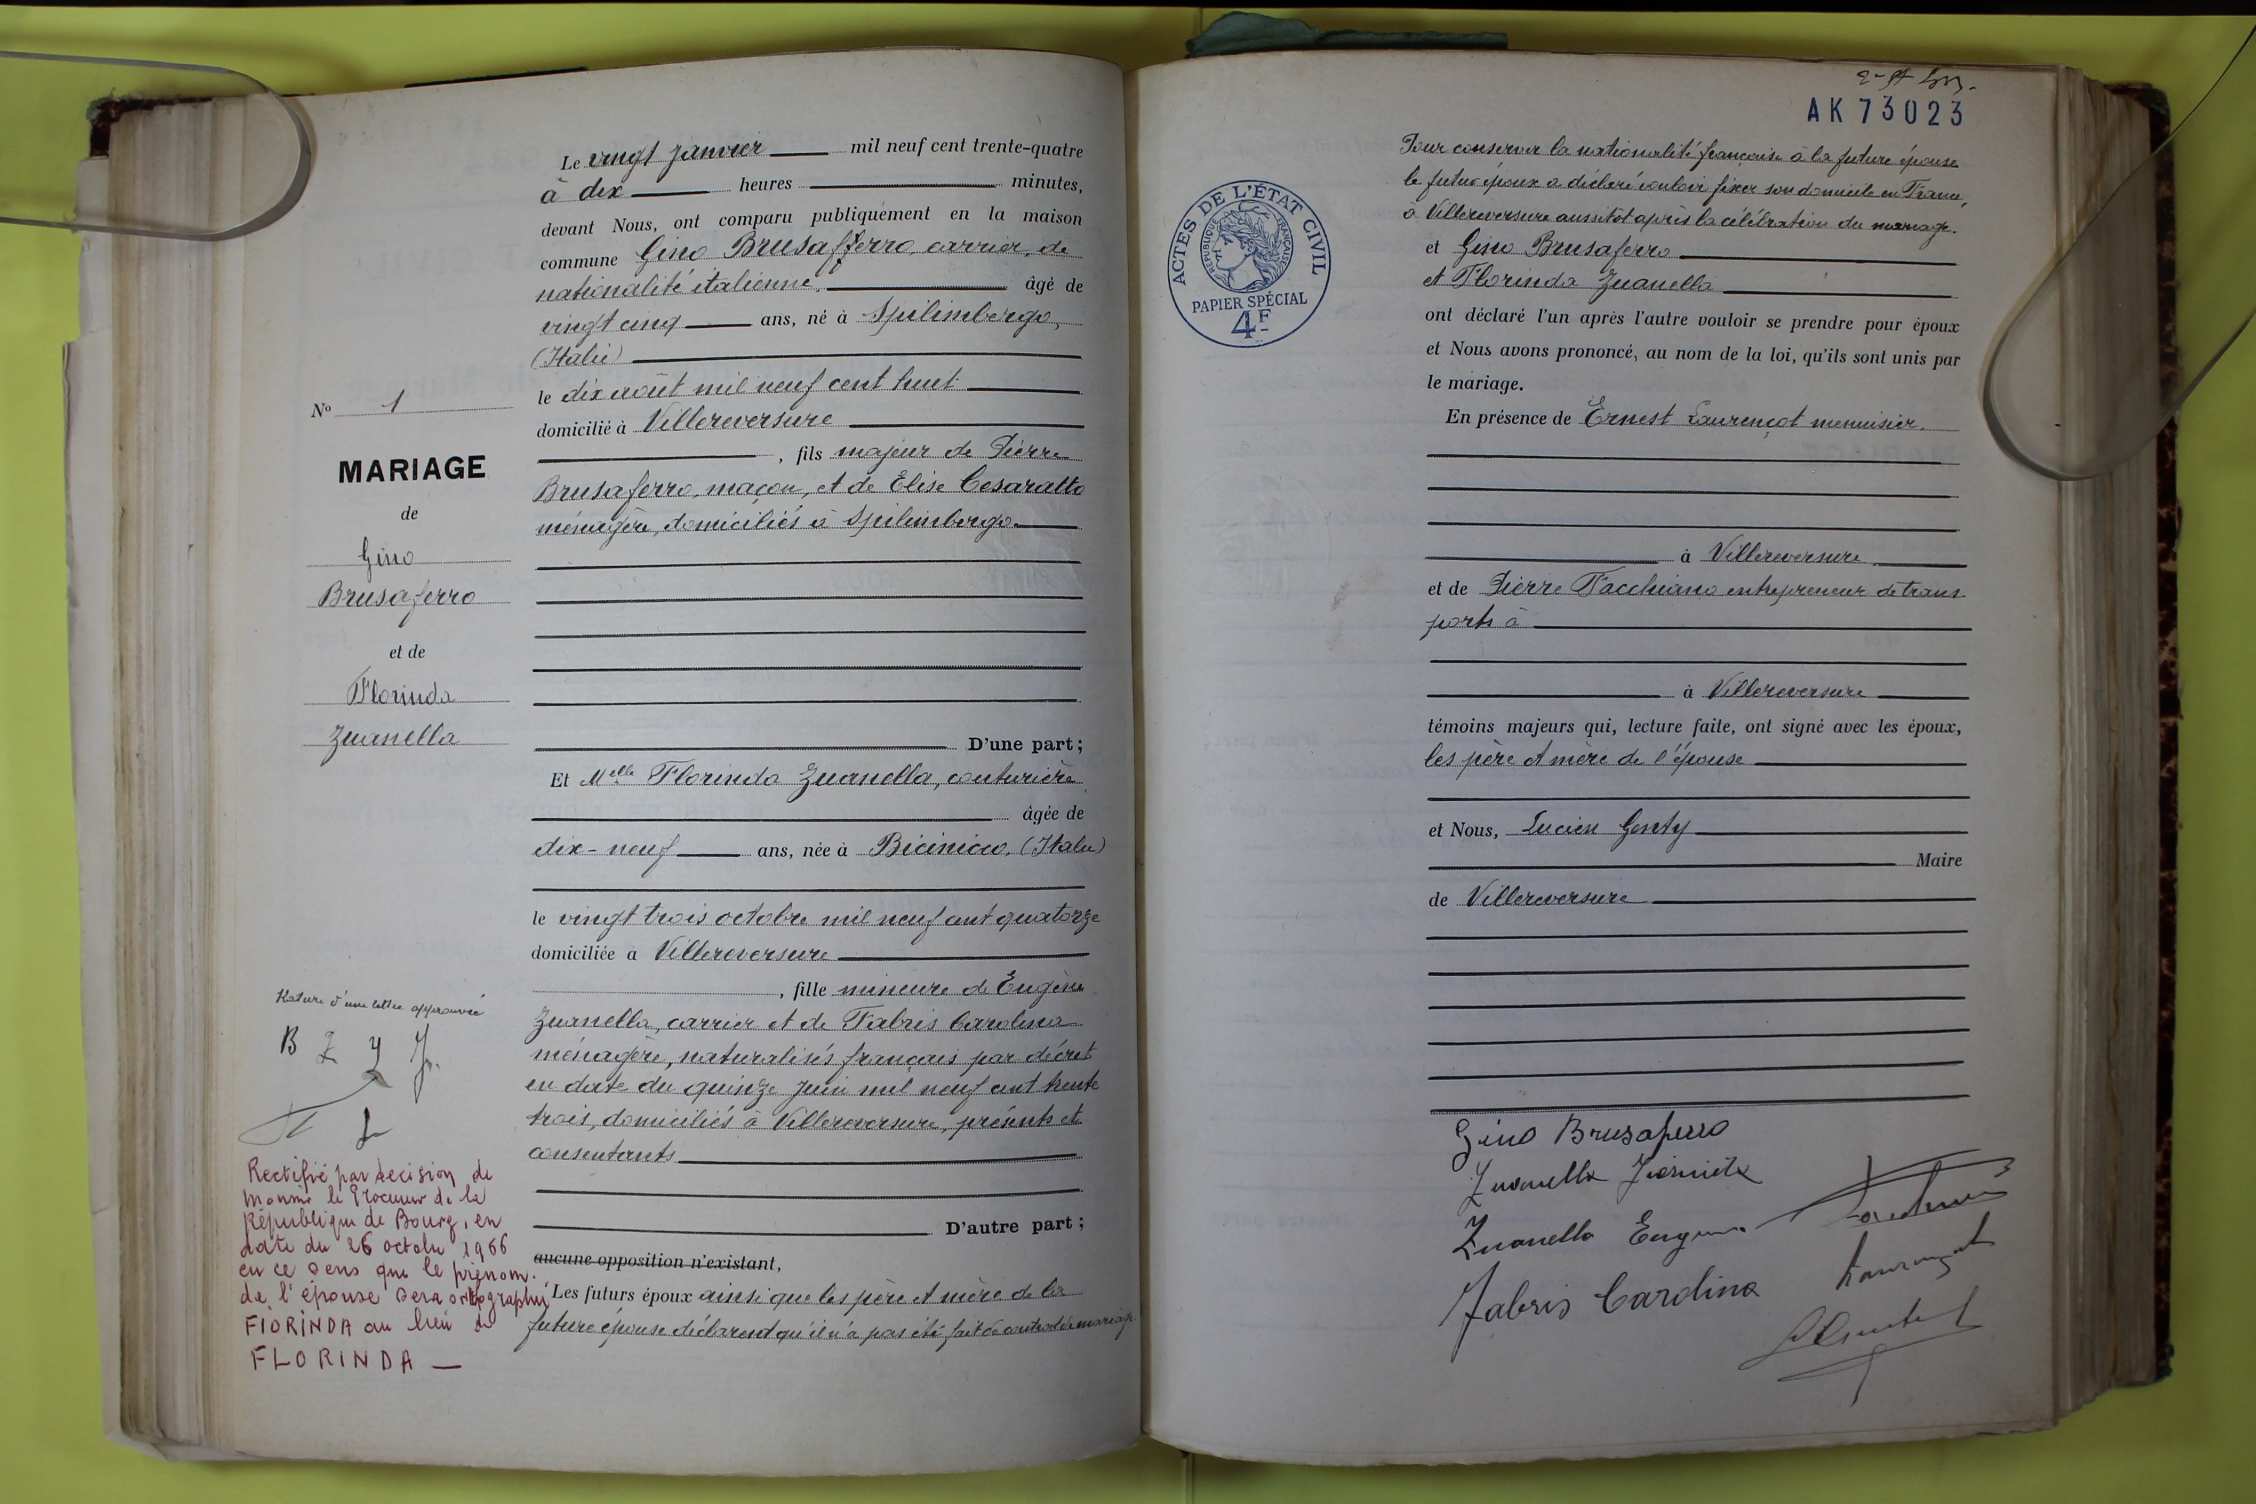 Le vingt janvier mil neuf cent trente-quatre
à dix heures minutes,
devant Nous, ont comparu publiquement en la maison
commune Gino Brusafferro, carrier, de
nationalité italienne, âgé de
vingt cinq ans, né à Spilimbergo,
(Italie)
le dix août mil neuf cent huit
domicilié à Villereversure
, fils majeur de Pierre
Brusaferro, maçon, et de Elise Cesaratto
ménagère, domiciliés à Spilimbergo.
D'une part;
Et Melle Florinda Zuanella, couturière
âgée de
dix-neuf ans, née à Bicinicco, (Italie)
le vingt trois octobre mil neuf cent quatorze
domiciliée à Villereversure
, fille mineure de Eugène
Zuanella, carrier et de Fabris Carolina
ménagère, naturalisés français par décret
en date du quinze juin mil neuf cent trente
trois, domiciliés à Villereversure, présents et
consentants
D'autre part;
aucune opposition n'existant,
Les futurs époux ainsi que les père et mère de la
future épouse déclarent qu'il n'a pas été fait de contrat de mariage
No 1
MARIAGE
de
Gino
Brusaferro
et de
Florinda
Zuanella
Rature d'une lettre approuvée
B Z
Rectifié par décision de
Monsieur le Procureur de la
République de Bourg, en
date du 26 octobre 1966
en ce sens que le prénom
de l'épouse sera orthographié
FIORINDA au lieu de
FLORINDA
AK 73023
ACTES DE L'ÉTAT CIVIL
RÉPUBLIQUE FRANÇAISE
PAPIER SPÉCIAL
4F
Pour conserver la nationalité française à la future épouse
le futur époux a déclaré vouloir fixer son domicile en France,
à Villereversure aussitot après la célébration du mariage.
et Gino Brusaferro
et Florinda Zuanella
ont déclaré l'un après l'autre vouloir se prendre pour époux
et Nous avons prononcé, au nom de la loi, qu'ils sont unis par
le mariage.
En présence de Ernest Laurençot menuisier.
à Villereversure
et de Pierre Facchiano entrepreneur de trans
ports à
à Villereversure
témoins majeurs qui, lecture faite, ont signé avec les époux,
les père et mère de l'épouse
et Nous, Lucien Genty
Maire
de Villereversure
Gino Brusaferro
Zuanella
Zuanella Eugene
Fabris Carolina
Laurençot